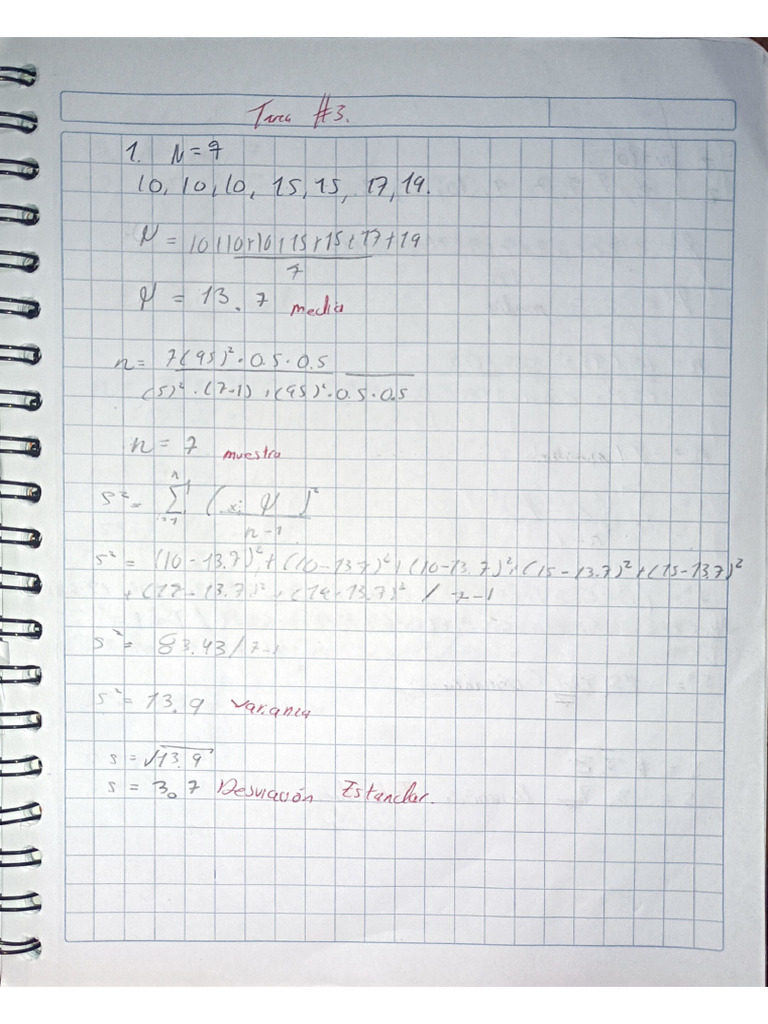 Tarea #3.
1. N = 7
10, 10, 10, 15, 15, 17, 19.
μ = 10+10+10+15+15+17+19
7
μ = 13.7 media
n = 7(95)²·0.5·0.5
(5)²·(7-1)+(95)²·0.5·0.5
n = 7 muestra
s² = Σ (xi μ)²
n-1
s² = (10-13.7)²+(10-13.7)²+(10-13.7)²+(15-13.7)²+(15-13.7)²
+(17-13.7)²+(19-13.7)² / 7-1
s² = 83.43/7-1
s² = 13.9 varianza
s = √13.9
s = 3.7 Desviación Estandar.